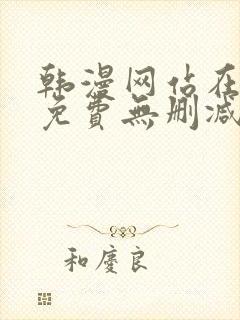 韩漫网站在
免費無删减
和慶良